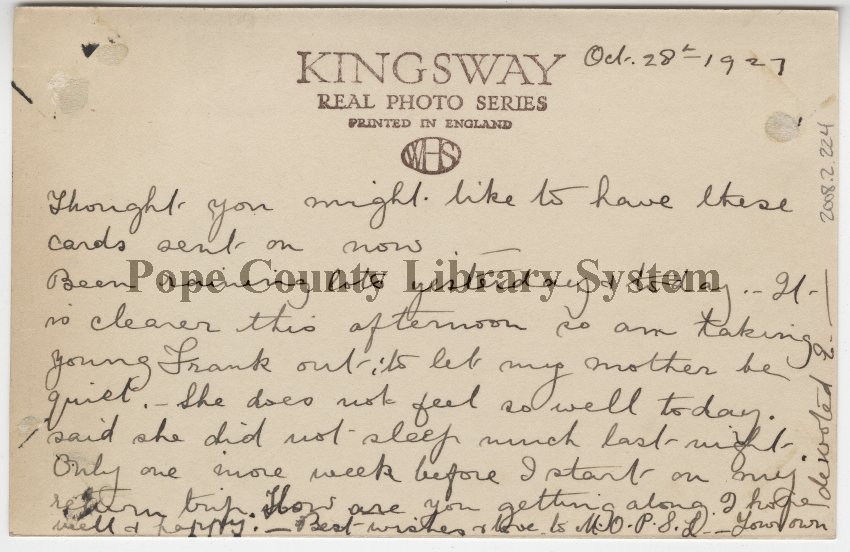 Oct. 28th 1927
KINGSWAY
REAL PHOTO SERIES
PRINTED IN ENGLAND
WHS
2008.2.224
Thought you might like to have these
cards sent on now
Been raining lots yesterday & today. - It
Pope County Library System
is clearer this afternoon so am taking
young Frank out, to let my mother be
quiet. - She does not feel so well today.
said she did not sleep much last night.
Only one more week before I start on my
return trip. How are you getting along, I hope
well & happy. - Best wishes & love to M.O.P.S.L - Your own
devoted